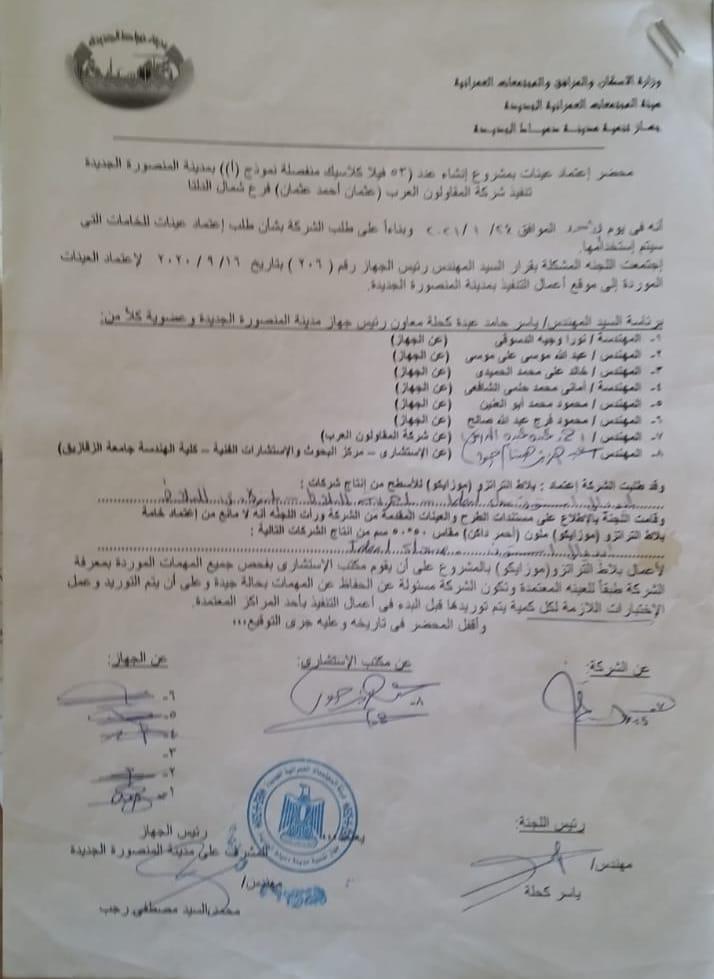 مدينة دمياط الجديدة
وزارة الاسكان والمرافق والمجتمعات العمرانية
هيئة المجتمعات العمرانية الجديدة
جهاز تنمية مدينة دمياط الجديدة
محضر إعتماد عينات بمشروع إنشاء عدد (٥٣ فيلا كلاسيك منفصلة نموذج (أ)) بمدينة المنصورة الجديدة
تنفيذ شركة المقاولون العرب (عثمان أحمد عثمان) فرع شمال الدلتا
أنه فى يوم الموافق ٢٤/ ١ /٢٠٢١ وبناءاً على طلب الشركة بشأن طلب إعتماد عينات للخامات التى
سيتم إستخدامها.
إجتمعت اللجنه المشكلة بقرار السيد المهندس رئيس الجهاز رقم ( ٢٠٦ ) بتاريخ ٢٠٢٠ / ٩ / ١٦ لإعتماد العينات
الموردة إلى موقع أعمال التنفيذ بمدينة المنصورة الجديدة.
برئاسة السيد المهندس/ ياسر حامد عبدة كحلة معاون رئيس جهاز مدينة المنصورة الجديدة وعضوية كلاً من:
١- المهندسة / نورا وجيه الدسوقى (عن الجهاز)
٢- المهندس / عبد الله موسى على موسى (عن الجهاز)
٣- المهندس / خالد على محمد الحميدى (عن الجهاز)
٤- المهندسة / أمانى محمد حلمى الشافعى (عن الجهاز)
٥- المهندس / محمود محمد أبو العنين (عن الجهاز)
٦- المهندس / محمود فرج عبد الله صالح (عن الجهاز)
٧- المهندس / (عن شركة المقاولون العرب)
٨- المهندس (عن الإستشارى – مركز البحوث والإستشارات الفنية – كلية الهندسة جامعة الزقازيق)
وقد طلبت الشركة إعتماد : بلاط الترانزو (موزايكو) للأسطح من إنتاج شركات :
وقامت اللجنة بالإطلاع على مستندات الطرح والعينات المقدمة من الشركة ورأت اللجنه أنه لا مانع من إعتماد خامة
بلاط الترانزو (موزايكو) ملون (أحمر داكن) مقاس ٥٠*٥٠ سم من انتاج الشركات التالية :
لأعمال بلاط الترانزو(موزايكو) بالمشروع على أن يقوم مكتب الإستشارى بفحص جميع المهمات الموردة بمعرفة
الشركة طبقاً للعينه المعتمدة وتكون الشركة مسئولة عن الحفاظ عن المهمات بحالة جيدة وعلى أن يتم التوريد وعمل
الإختبارات اللازمة لكل كمية يتم توريدها قبل البدء فى أعمال التنفيذ بأحد المراكز المعتمدة.
وأقفل المحضر فى تاريخه وعليه جرى التوقيع،،،
عن الشركة:
عن مكتب الإستشارى:
عن الجهاز:
٧-
٨-
٦-
٥-
٤-
٣-
٢-
١-
رئيس اللجنة:
مهندس/
ياسر كحلة
يعتمد،،،
رئيس الجهاز
المشرف على مدينة المنصورة الجديدة
مهندس/
محمد السيد مصطفى رجب